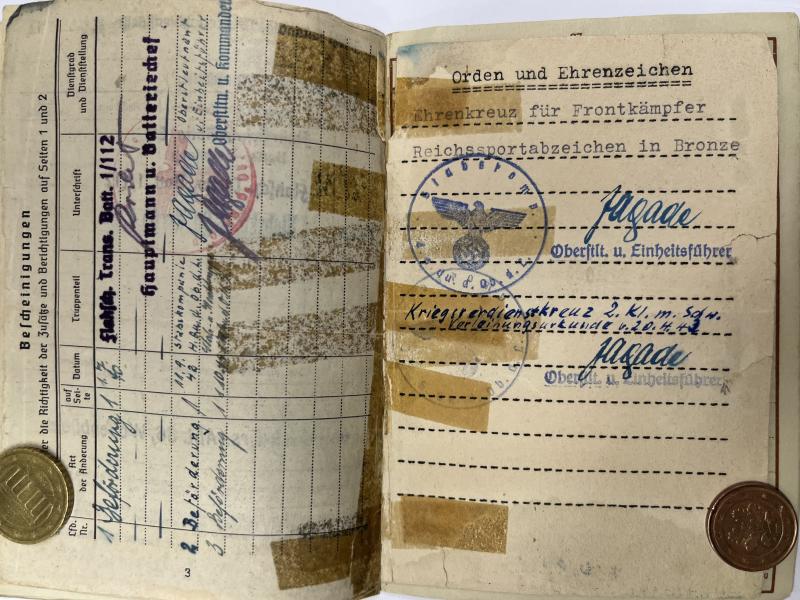 Bescheinigungen
er die Richtigkeit der Zusätze und Berichtigungen auf Seiten 1 und 2
Lfd. Nr.
Art der Änderung
auf Seite
Datum
Truppenteil
Unterschrift
Dienstgrad und Dienststellung
1 Beförderung 1
Flaksch. Trans. Batt. 1/112
Hauptmann u. Batteriechef
2. Beförderung 1 Stabskompanie Jagade Oberstleutnant u. Einheitsführer
3 Beförderung 1 Oberstltn. u. Kommandeur
3
Orden und Ehrenzeichen
Ehrenkreuz für Frontkämpfer
Reichssportabzeichen in Bronze
Stabskomp.
Jagade
Oberstlt. u. Einheitsführer
Kriegsverdienstkreuz 2. Kl. m. Schw.
Verleihungsurkunde v. 20.4.42
Jagade
Oberstlt. u. Einheitsführer